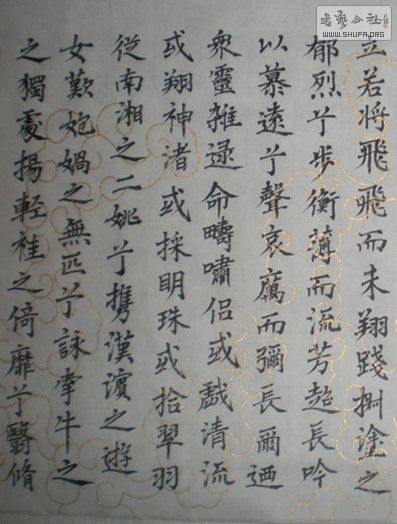 書藝公社
WWW.SHUFA.ORG
立若将飛飛而未翔踐椒塗之
郁烈兮步衡薄而流芳超長吟
以慕遠兮聲哀厲而彌長爾迺
衆靈雜遝命疇嘯侶或戲清流
或翔神渚或採明珠或拾翠羽
從南湘之二姚兮携漢濱之遊
女歎㚿媧之無匹兮詠牽牛之
之獨處揚輕袿之倚靡兮翳脩